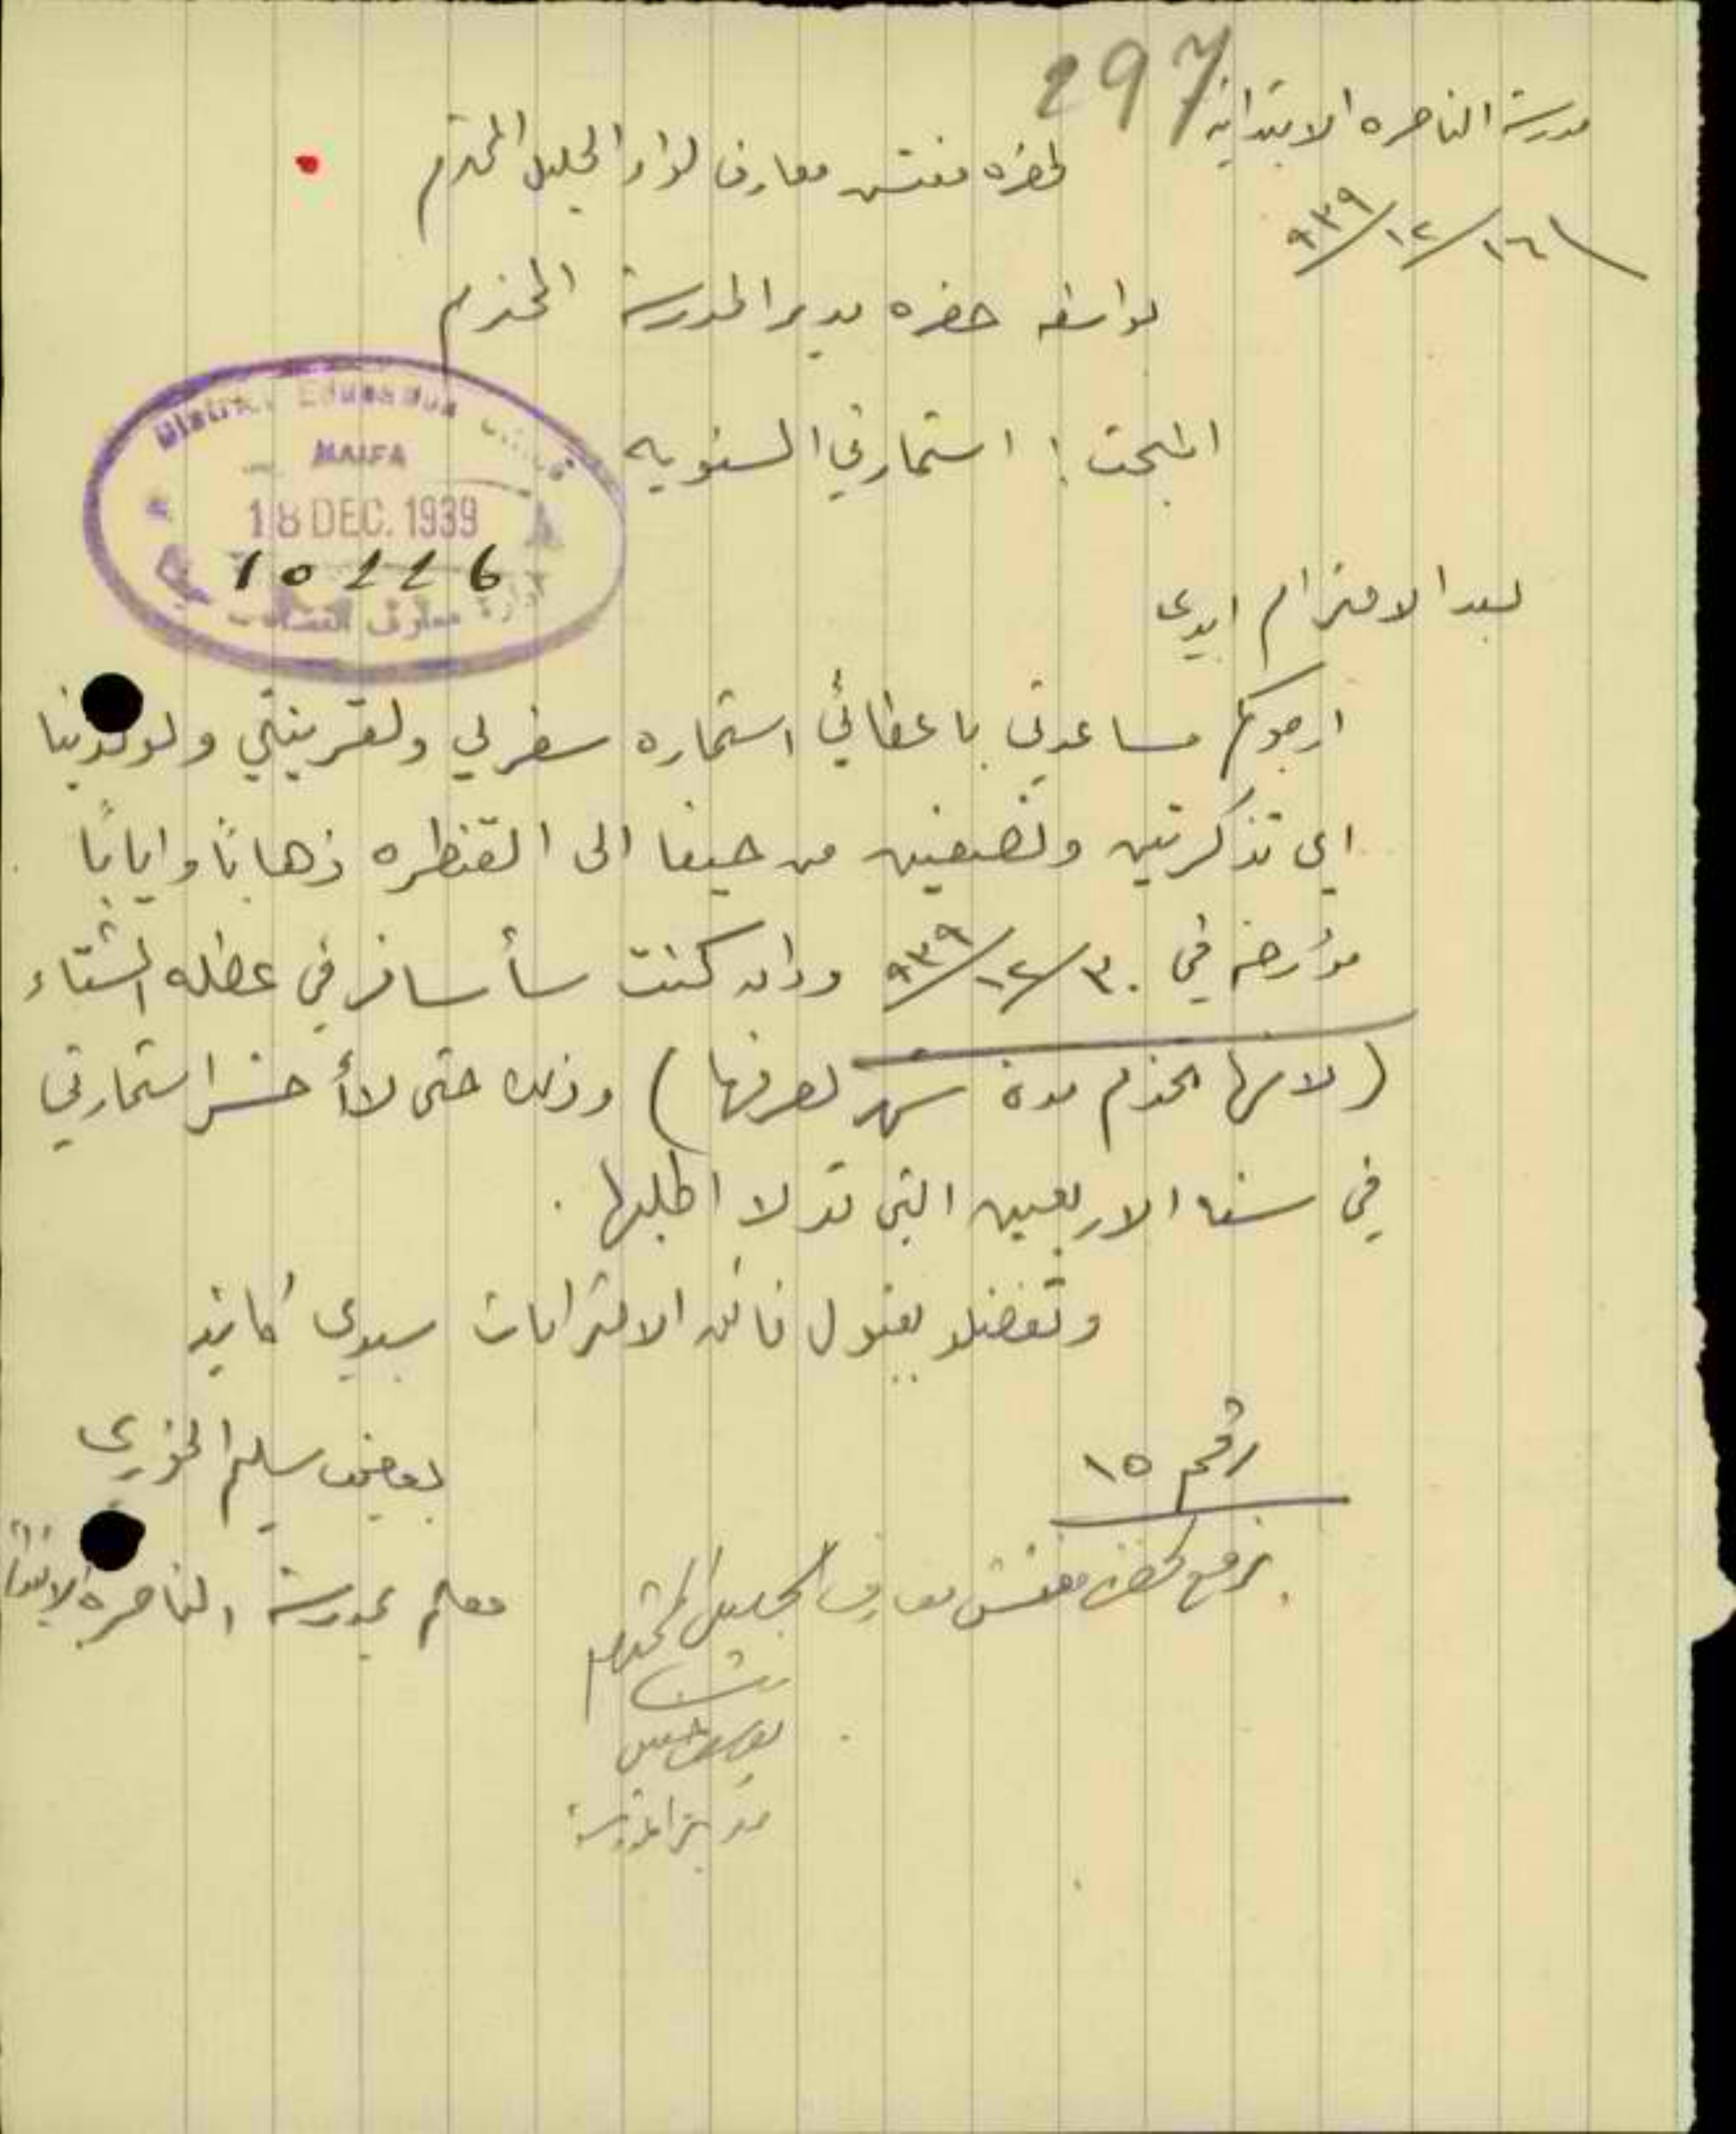 297
مدرسة الناصره الابتدائية
١٦/١٢/٩٣٩
لحضرة مفتش معارف لواء الجليل المحترم
بواسطه حضره مدير المدرسة المحترم
المبحث: استمارتي السنويه
District Education Office
HAIFA
18 DEC. 1939
10226
ادارة معارف القضاء
بعد الاحترام ابدي
ارجوكم مساعدتي باعطائي استماره سفر لي ولقرينتي ولولدينا
اي تذكرتين ونصفين من حيفا الى القنطره ذهابًا وايابًا
مؤرخه في ٣٠/١٢/٩٣٩ وان كنت سأسافر في عطله الشتاء
(لانها تخدم مدة شهر لصرفها) وذلك حتى لا أخسر استمارتي
في سنة الاربعين التي قد لا اطلبها.
وتفضلو بقبول فائق الاحترامات سيدي
سليم الخوري
معلم بمدرسة الناصرة الابتدائية
رقم ١٥
ترفع لحضرة مفتش معارف الجليل المحترم
مدير المدرسة